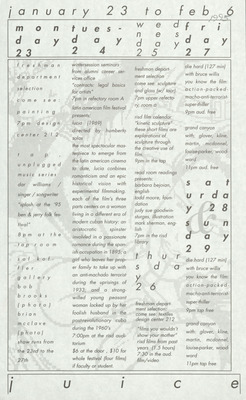 january 23 to feb 6
monday
23
tuesday
24
wednesday
25
friday
27
freshman
department
selection
come see
painting
7pm design
center 212
tap
unplugged
music series
dar williams
player / songwriter
"splash at the '95
ben & jerry folk fes-
tival"
8pm at the
taproom
sol koffler
gallery
bob
brooks
[photos]
brian
mcclave
[photo]
show runs from
the 23rd to the
27th
wintersession seminars
from alumni career ser-
vices office
"contracts: legal basics
for artists"
7pm in refectory room A
latino americas film festival
presents:
lucia (1969)
directed by humberto
solas
the most spectacular mas-
terpiece to emerge from
the latin american cinema
to date, lucia combines
romanticism and an epic
historical vision with
experimental filmmaking.
each of the film's three
parts centers on a woman
living in a different era of
modern cuban history: an
aristocratic woman
involved in a passionate
romance during the span-
ish occupation in 1895; a
girl who leaves her prop-
er family to take up with
an anti-machado terrorist
during the uprisings of
1933; and a strong-
willed young peasant
woman locked up by her
foolish husband in the
postrevolutionary cuba
during the 1960's
7:00pm at the risd
auditorium
$6 at the door , $10 for
whole festival (four films)
if faculty or student
freshman depart-
ment selection
come see: sculpture
and glass (w/ taps)
7pm upper refecto-
ry room A
risd film calendar
"kinetic sculpture"
these short films are
explorations of
sculpture through
the creative use of
film
9pm in the tap
read room readings
presents:
barbara bejoian,
english
todd moore, foun-
dation
judy sue goodwin-
sturges, illustration
mark sherman, eng-
lish
7pm in the risd
thursday
26
freshman depart-
ment selection:
come see: textiles
design center 212
"films you wouldn't
show your mother"
risd films from past
years (1.5 hours)
7:30 in the aud.
film/video
die hard (127 min)
with bruce willis
you know the film
action-packed
macho-anti-terrorist
super-thriller
9pm aud. free
grand canyon
with: glover, kline,
martin, mcdonnel,
louise-parker, wood-
ward
11pm aud. free
saturday 28
sunday
29
die hard (127 min)
with bruce willis
you know the film
action-packed
macho-anti-terrorist
super-thriller
9pm tap free
grand canyon
with: glover, kline,
martin, mcdonnel,
louise-parker, wood-
ward
11pm tap free
juice